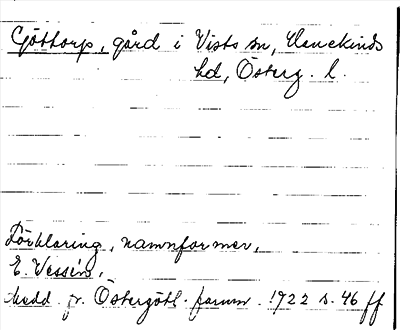 Gjöttorp, gård i Vists sn, Hanekinds
hd, Österg. l.
Förklaring, namnformer,
E. Wessén,
Medd. fr. Östergötl. fornm. 1922 s. 46 ff